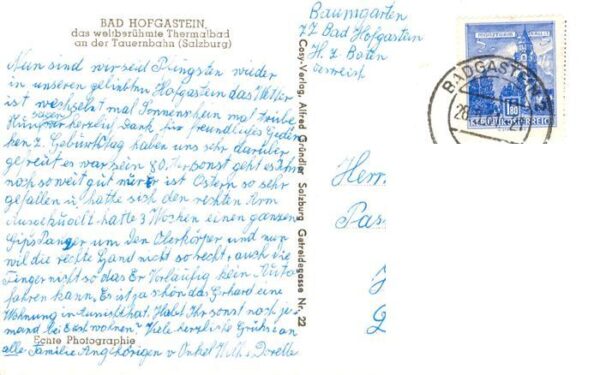 BAD HOFGASTEIN,
das weltberühmte Thermalbad
an der Tauernbahn (Salzburg)
Nun sind wir seid Pfingsten wieder
in unseren geliebten Hofgastein das Wetter
ist wechselnt mal Sonnenschein mal trübe
sagen
Nun für herzlich Dank für freundliches Geden
ken z. Geburtstag haben uns sehr darüber
gefreut es war sein 80. Er sonst geht es Ihm
noch soweit gut nur er ist Ostern so sehr
gefallen u. hatte sich den rechten Arm
Ausgekugelt hatte 3 Wochen einen ganzen
Gips Panzer um den Oberkörper und nun
wil die rechte Hand nicht so recht, auch die
Finger nicht so das Er Vorläufig kein Auto
fahren kann. Es ist ja schön das Gerhard eine
Wohnung in Aussicht hat. Habt Ihr sonst noch je
mand bei Euch wohnen? Viele herzliche Grüße an
alle Familie Angehörigen v Onkel Willi u Dorelle
Echte Photographie
Cosy-Verlag, Alfred Gründler Salzburg Getreidegasse Nr. 22
Baumgarten
ZZ Bad Hofgastein
H. z Boten
Oesterreich
BADGASTEIN 2
1.80
REPUBLIK ÖSTERREICH
Herr
Pas